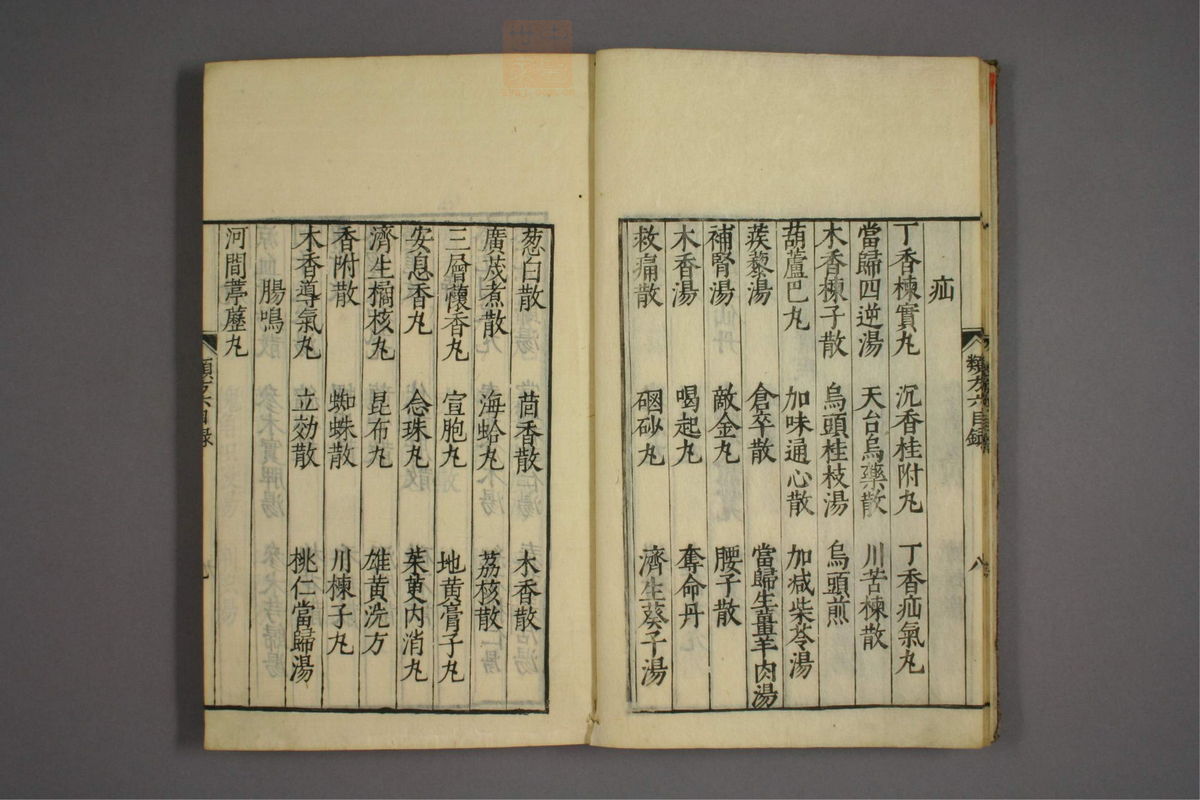 疝
丁香楝實丸 沉香桂附丸 丁香疝氣丸
當歸四逆湯 天台烏藥散 川苦楝散
木香楝子散 烏頭桂枝湯 烏頭煎
葫蘆巴丸 加味通心散 加减柴苓湯
蒺藜湯 倉卒散 當歸生薑羊肉湯
補腎湯 敵金丸 腰子散
木香湯 喝起丸 奪命丹
救痛散 硇砂丸 濟生葵子湯
類方六目錄 八
葱白散 茴香散 木香散
廣茂煮散 海蛤丸 荔核散
三層懷香丸 宣胞丸 地黄膏子丸
安息香丸 念珠丸 茱萸内消丸
濟生橘核丸 昆布丸 雄黄洗方
香附散 蜘蛛散 川楝子丸
木香導氣丸 立効散 桃仁當歸湯
腸鳴
河間葶藶丸
類方六目錄 九